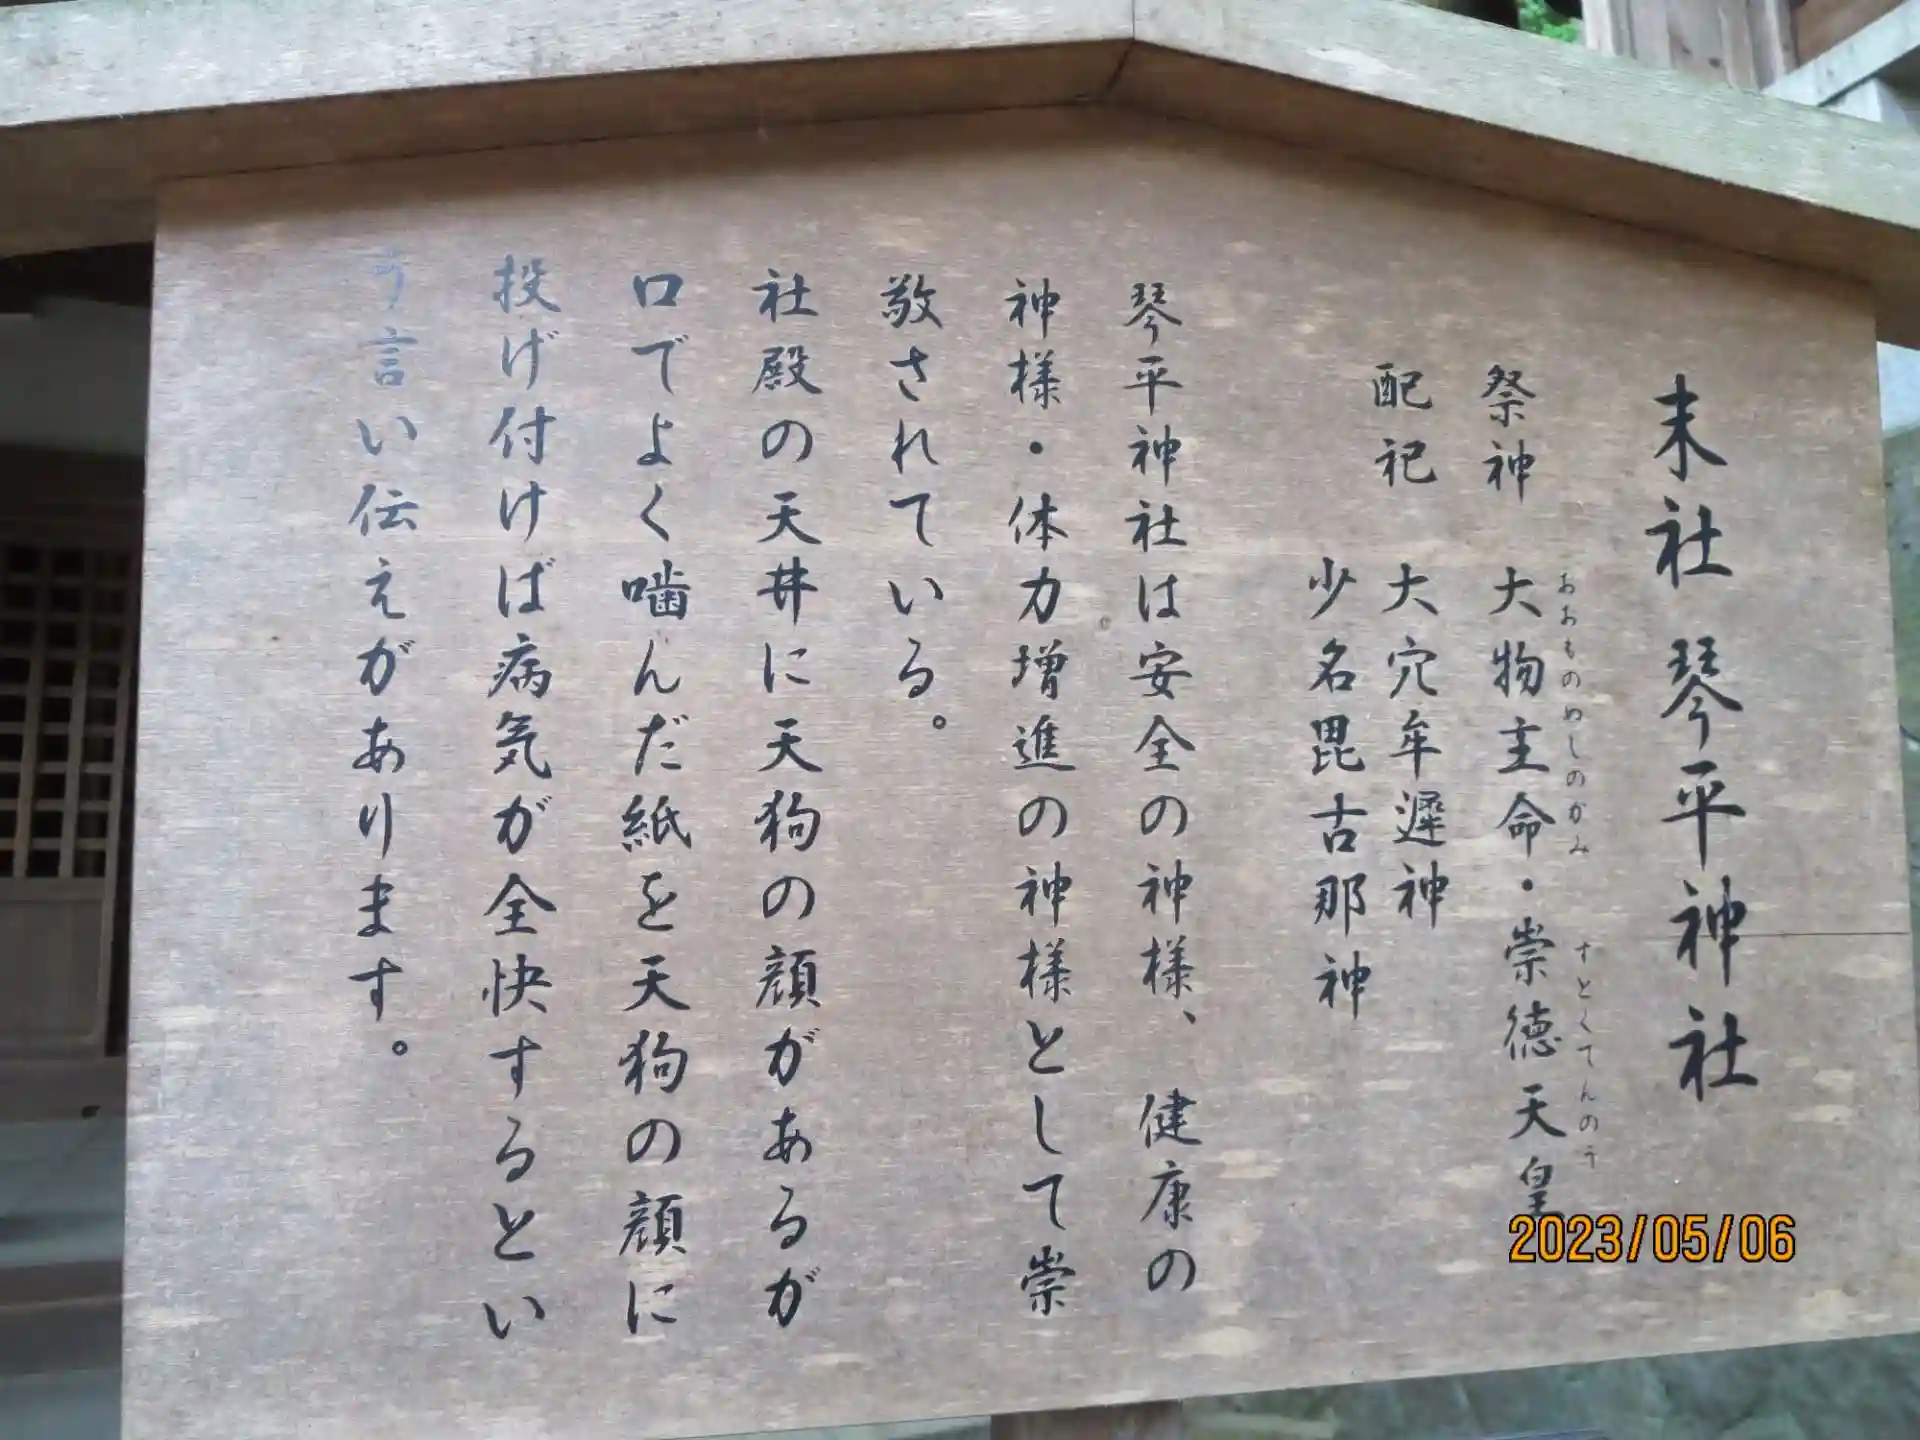 末社 琴平神社
祭神 大物主命・崇徳天皇
おおものぬしのかみ すとくてんのう
配祀 大穴牟遲神
少名毘古那神
琴平神社は安全の神様、健康の
神様・体力増進の神様として崇
敬されている。
社殿の天井に天狗の顔があるが
口でよく噛んだ紙を天狗の顔に
投げ付ければ病気が全快するとい
う言い伝えがあります。
2023/05/06